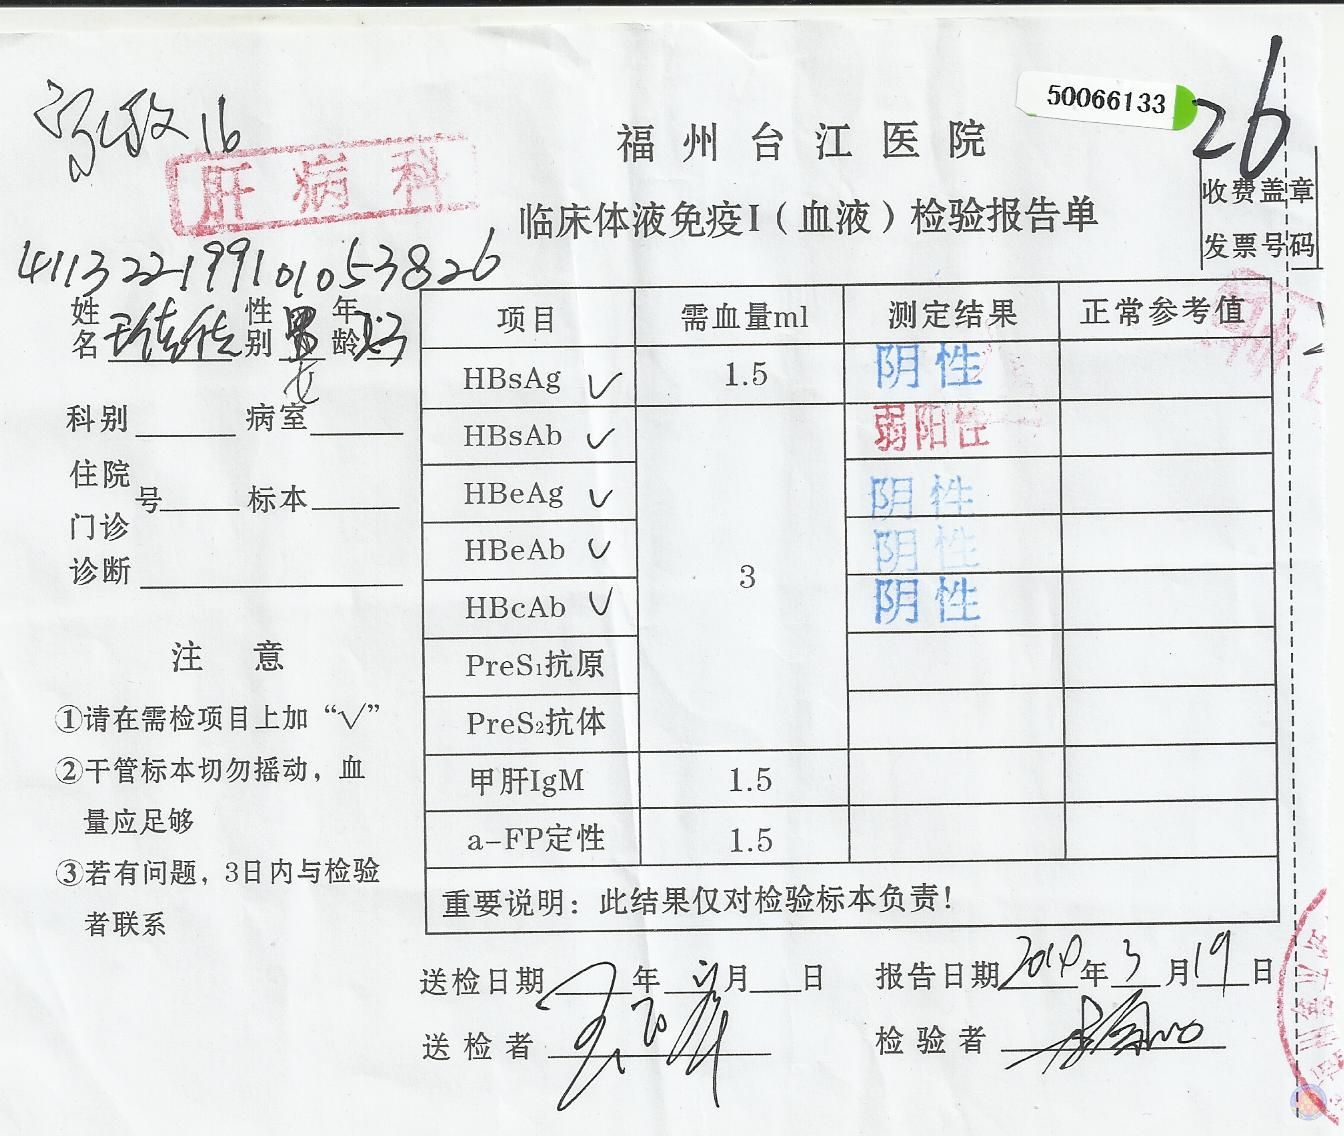 50066133
26
福州台江医院
肝病科
收费盖章
发票号码
临床体液免疫I（血液）检验报告单
411322199101053826
姓名 性别 男 年龄 23
女
科别 病室
住院
号 标本
门诊
诊断
项目 需血量ml 测定结果 正常参考值
HBsAg ✓ 1.5 阴性
HBsAb ✓ 3 弱阳性
HBeAg ✓ 阴性
HBeAb ✓ 阴性
HBcAb ✓ 阴性
PreS₁抗原
PreS₂抗体
甲肝IgM 1.5
a-FP定性 1.5
重要说明：此结果仅对检验标本负责！
注意
①请在需检项目上加“√”
②干管标本切勿摇动，血
量应足够
③若有问题，3日内与检验
者联系
送检日期 年 月 日 报告日期 2014年3月19日
送检者 检验者